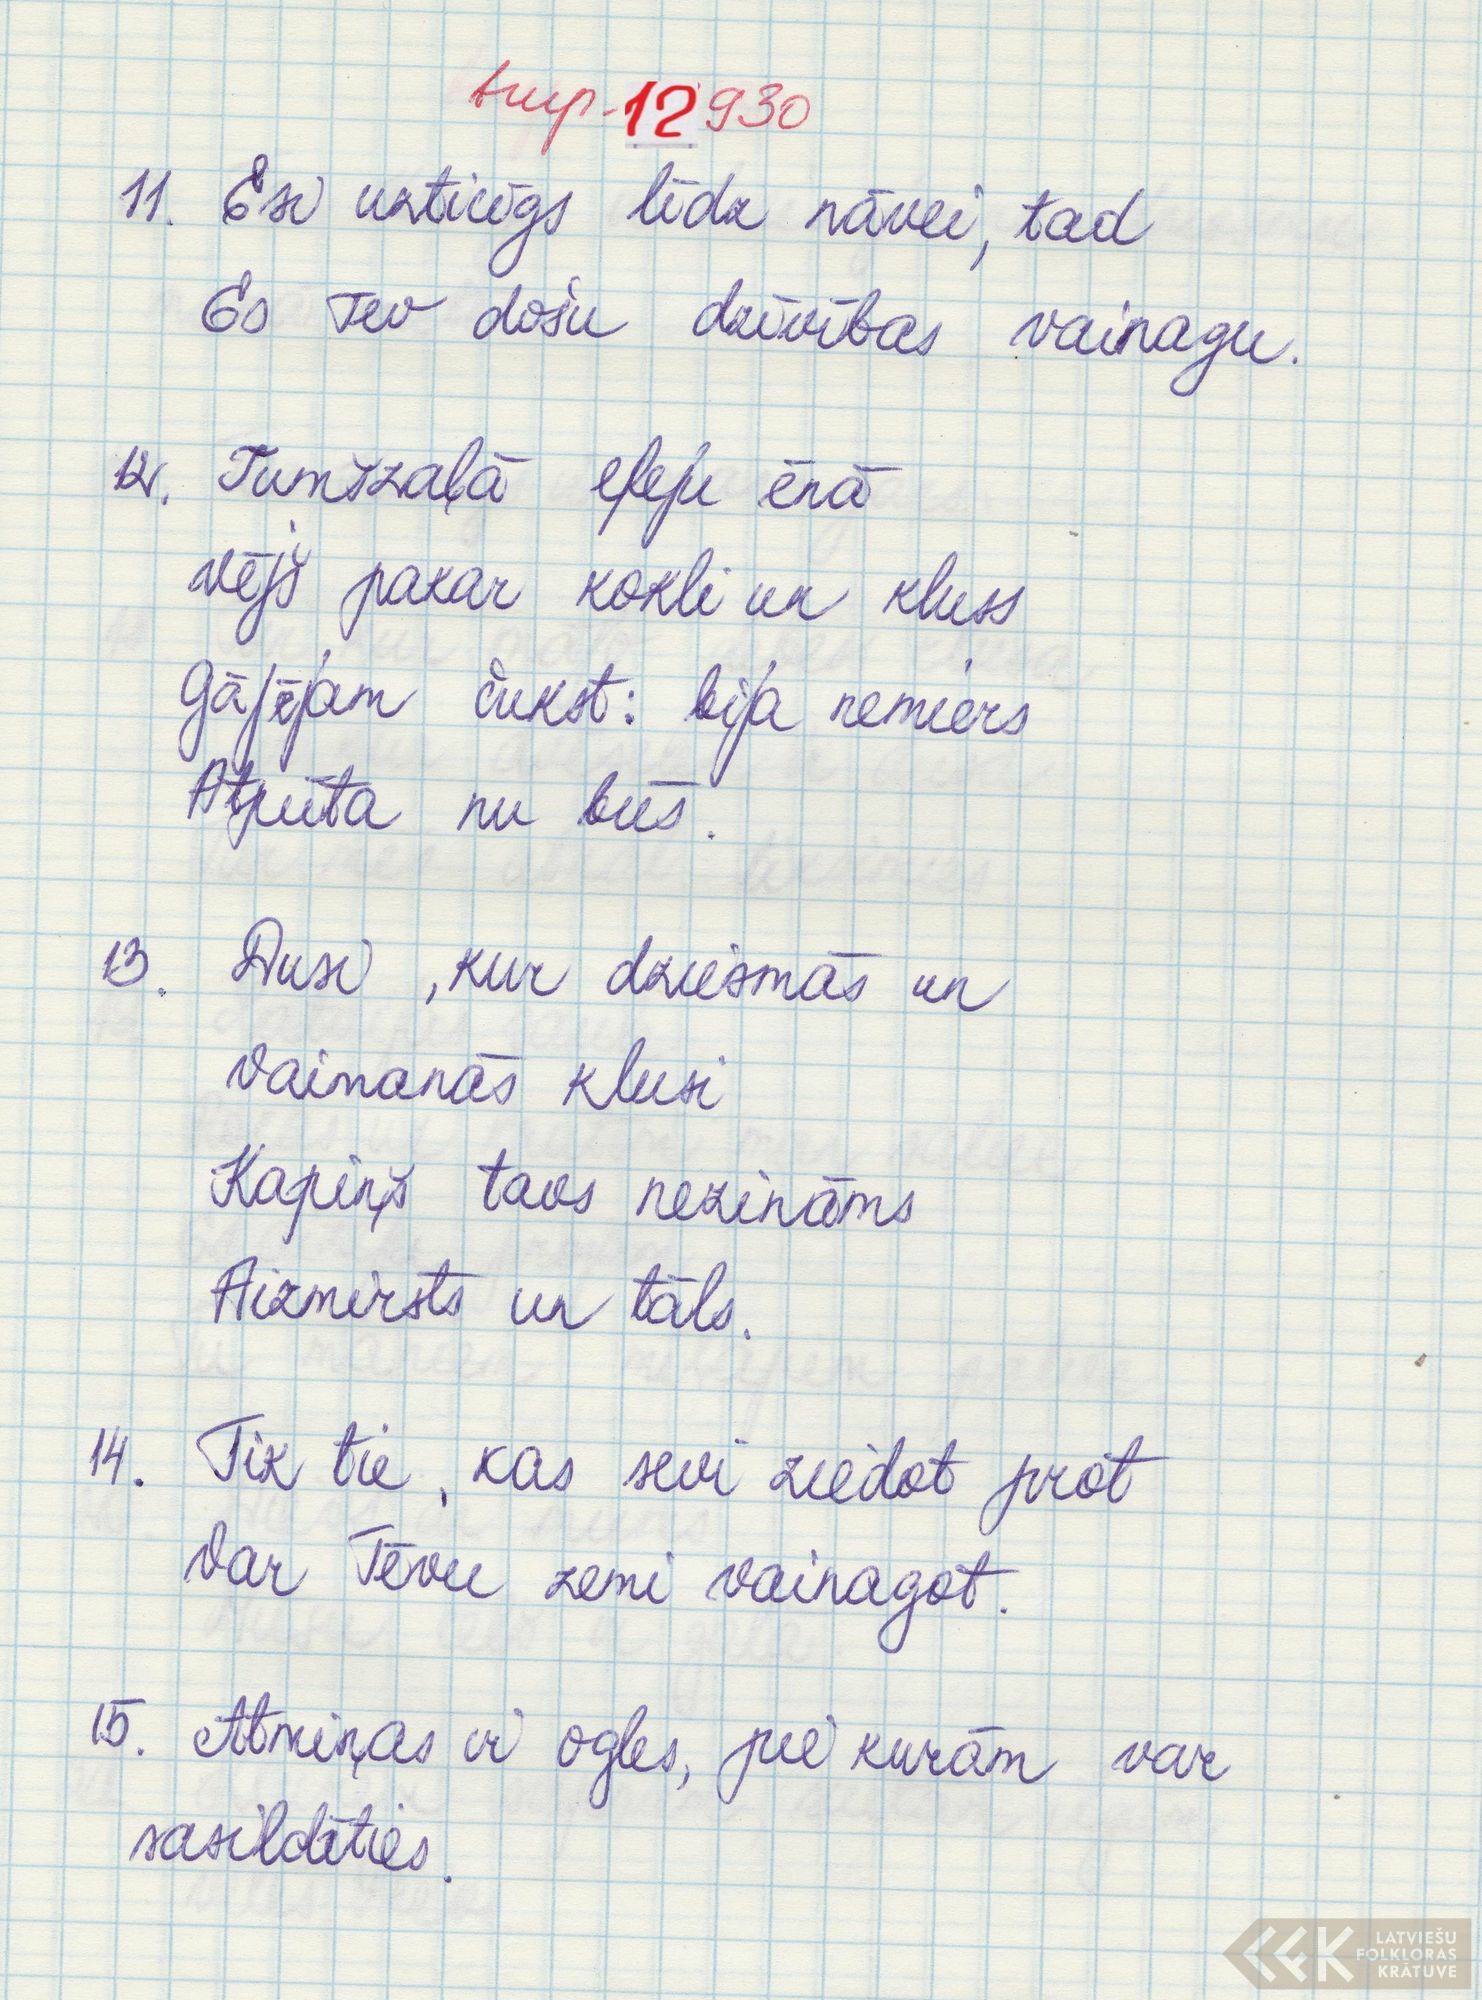 12930
11. Esi uzticīgs līdz nāvei, tad
Es Tev došu dzīvības vainagu.
12. Tumšzaļā efeju ēnā
vējš pakar kokli un kluss
Gājējam čukst: bija nemiers
Atpūta nu būs.
13. Dusi, kur dziesmās un
Vaimanās klusi
Kapiņš tavs nezināms
Aizmirsts un tāls.
14. Tik tie, kas sevi ziedot prot
Var Tēvu zemi vainagot.
15. Atmiņas ir ogles, pie kurām var
sasildīties.
LATVIEŠU
FOLKLORAS
KRĀTUVE